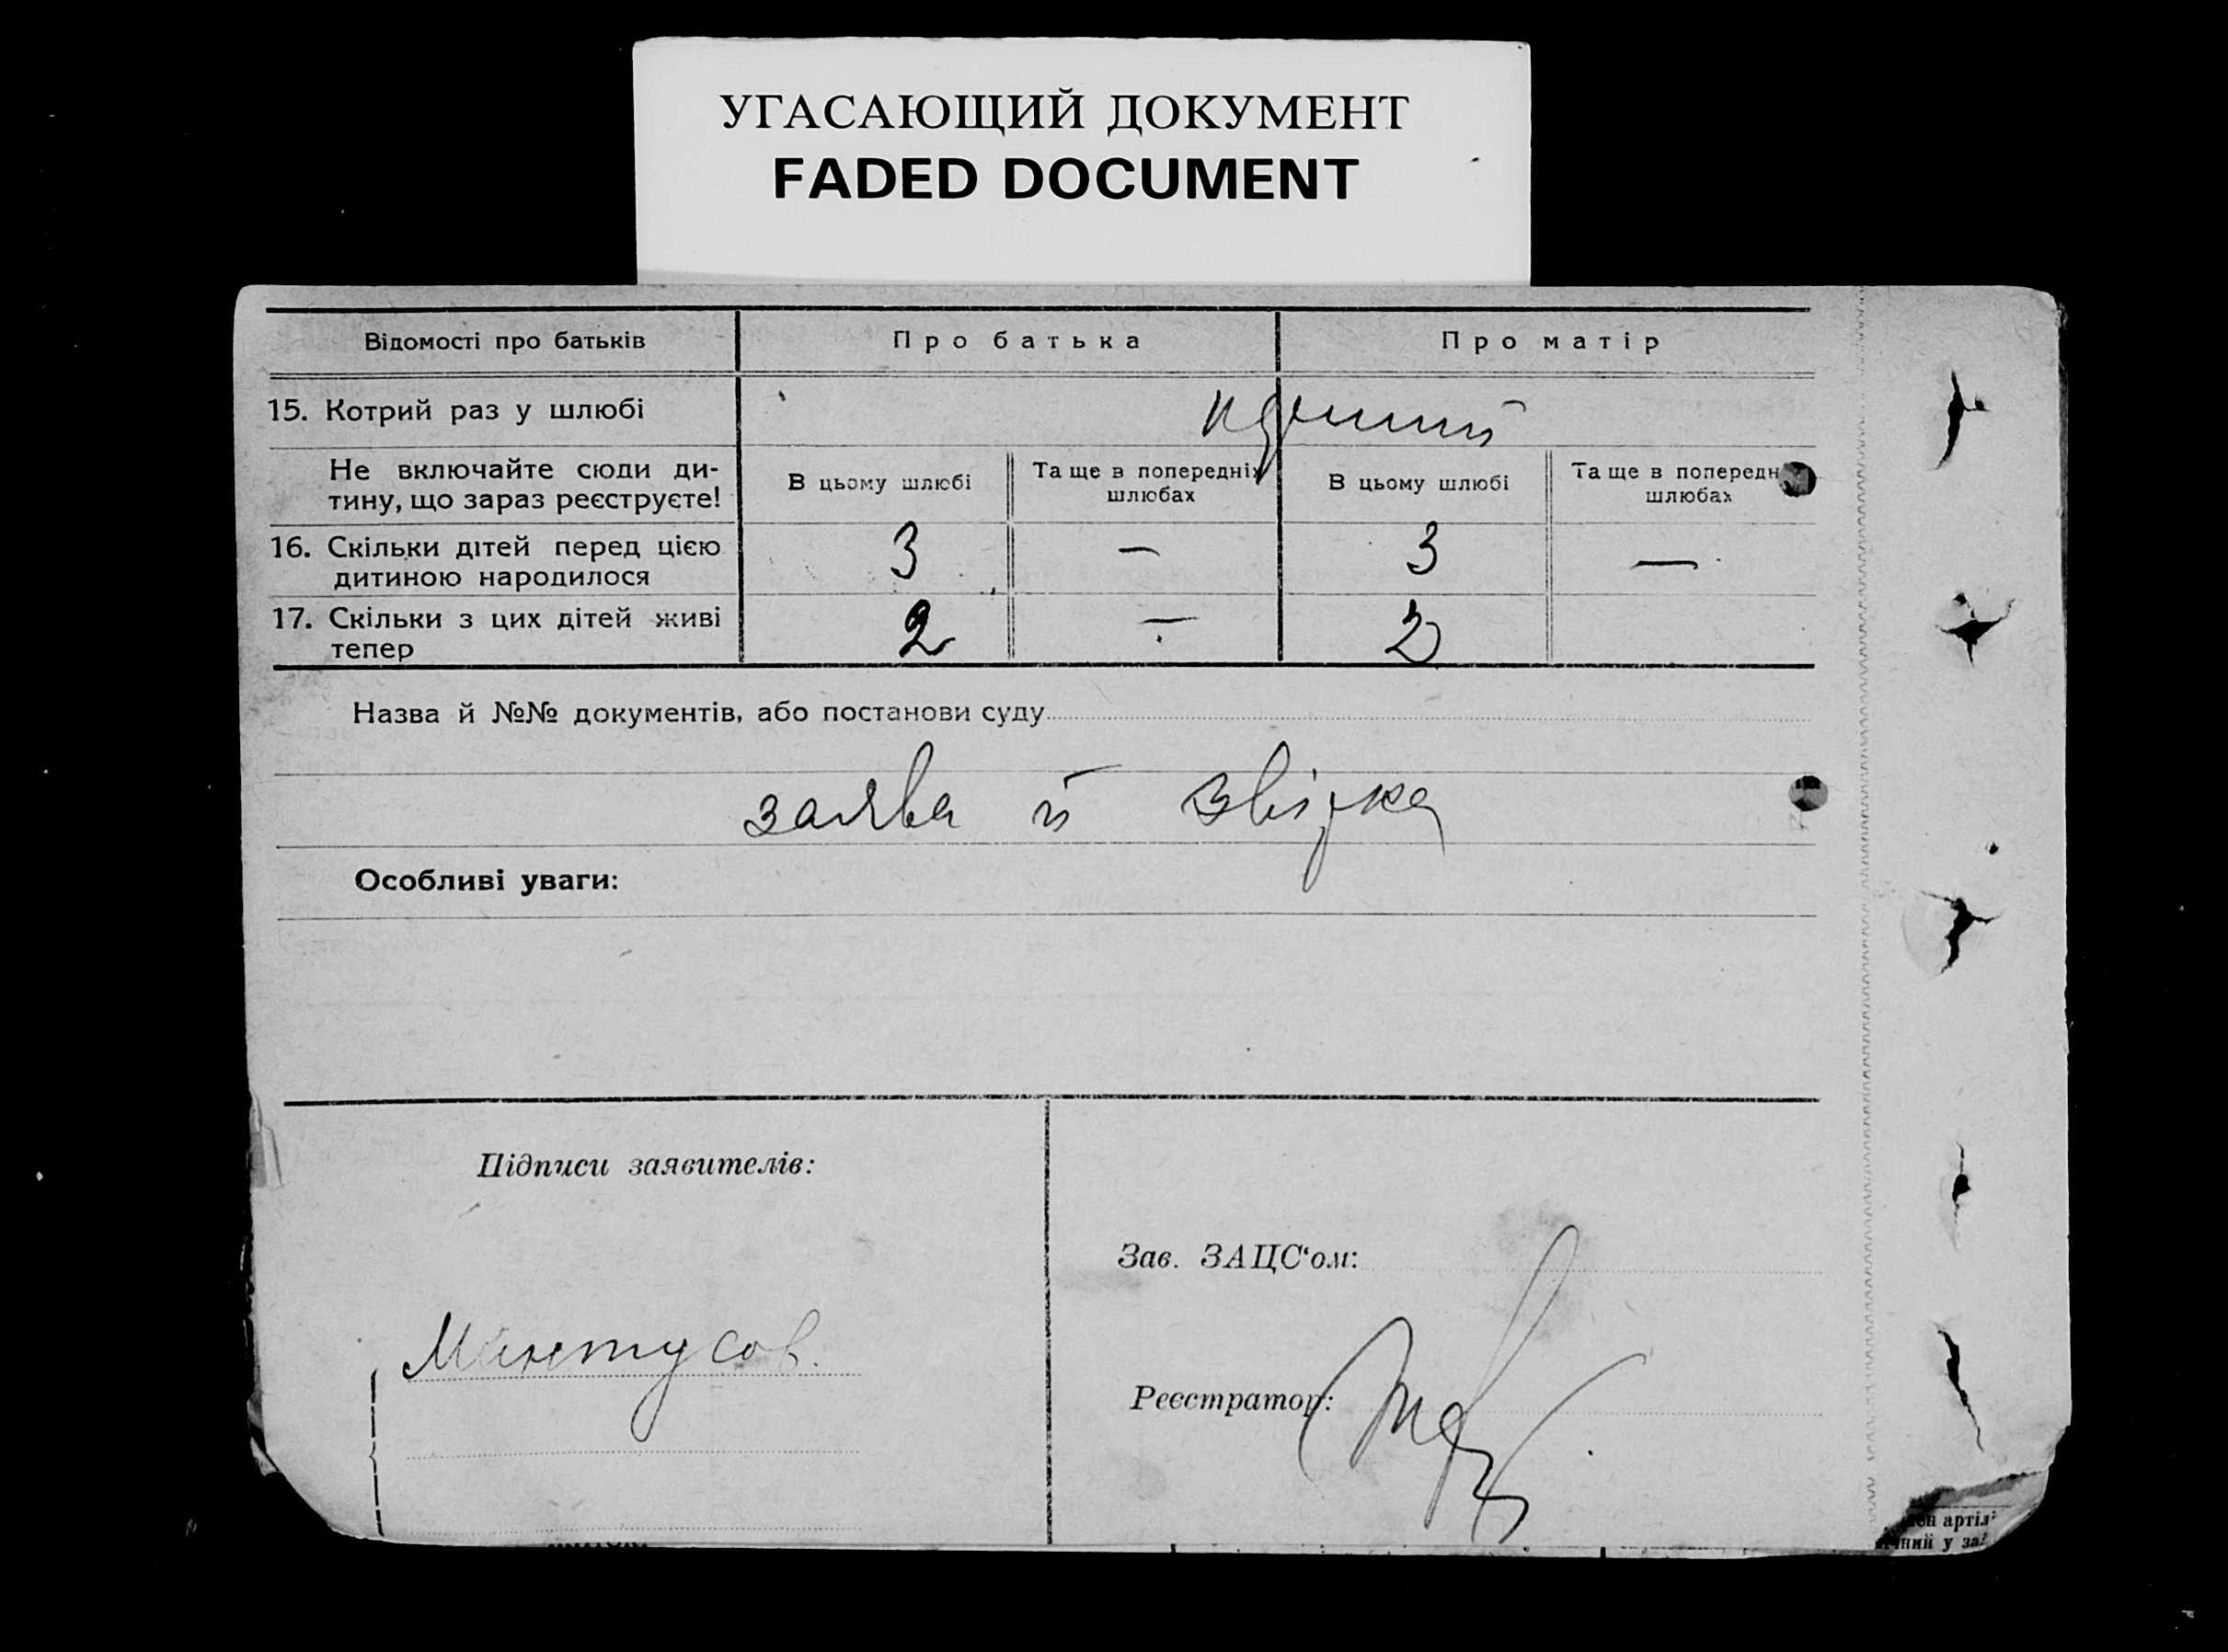 УГАСАЮЩИЙ ДОКУМЕНТ
FADED DOCUMENT
Відомості про батьків
Про батька
Про матір
15. Котрий раз у шлюбі
Не включайте сюди ди-
тину, що зараз реєструєте!
В цьому шлюбі
Та ще в попередніх
шлюбах
В цьому шлюбі
Та ще в попередн
шлюбах
16. Скільки дітей перед цією
дитиною народилося
3
—
3
—
17. Скільки з цих дітей живі
тепер
2
—
2
Назва й №№ документів, або постанови суду
заява й звірка
Особливі уваги:
Підписи заявителів:
Мантусов.
Зав. ЗАЦС‘ом:
Реєстратор:
артіл
ний у за